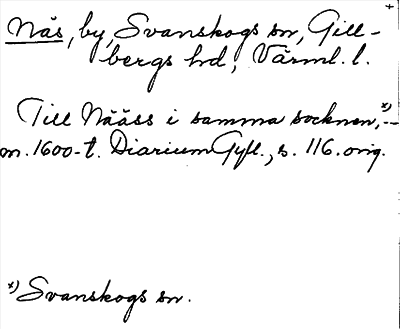 Nås, by, Svanskogs sn, Gill-
bergs hd, Värml. l.
Till Nååss i samma socknen,x) --
m. 1600-t. Diarium Gyll., s. 116. orig.
x) Svanskogs sn.